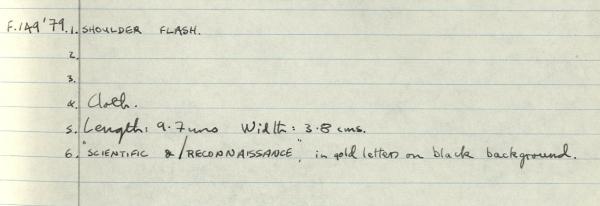 F.149'79. 1. SHOULDER FLASH.
2.
3.
4. Cloth.
5. Length: 9.7cms Width: 3.8 cms.
6. "SCIENTIFIC & / RECONNAISSANCE", in gold letters on black background.